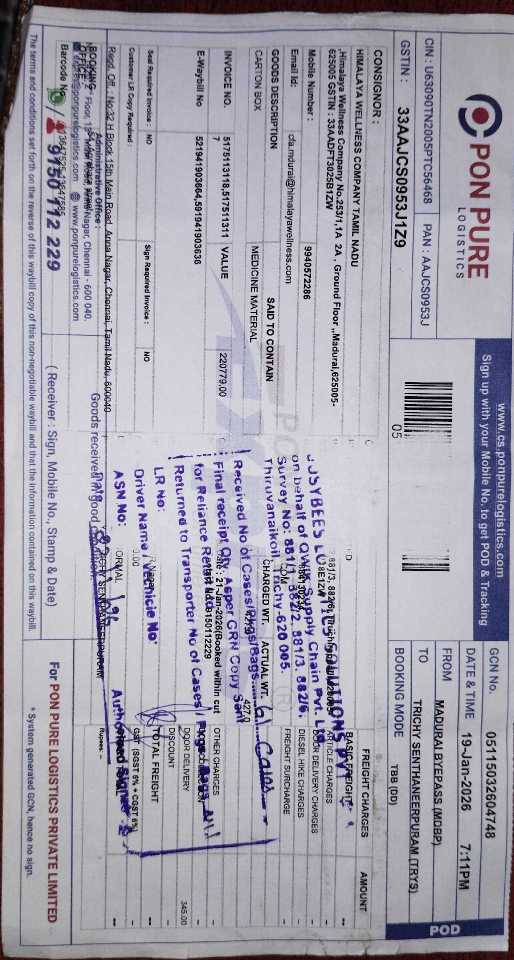 PON PURE
LOGISTICS
CIN : U63090TN2005PTC56468 PAN : AAJCS0953J
GSTIN : 33AAJCS0953J1Z9
05
www.cs.ponpurelogistics.com
Sign up with your Mobile No. to get POD & Tracking
GCN No. 05115032604748
DATE & TIME 19-Jan-2026 7:11PM
FROM MADURAI BYEPASS (MDBP)
TO TRICHY SENTHANEERPURAM (TRYS)
BOOKING MODE TBB (DD)
POD
CONSIGNOR :
HIMALAYA WELLNESS COMPANY TAMIL NADU
,Himalaya Wellness Company No.253/,1A 2A , Ground Floor ,,Madurai,625005-
625005 GSTIN : 33AADFT3025B1ZW
Mobile Number : 9940572286
Email Id: cfa.mdurai@himalayawellness.com
GOODS DESCRIPTION SAID TO CONTAIN
CARTON BOX MEDICINE MATERIAL
CHARGED WT. ACTUAL WT.
427.0
INVOICE NO. 5175113118,517511311 VALUE 220779.00
7
E-Waybill No 521941903664,591941903636
Seal Required Invoice : NO Sign Required Invoice : NO
Customer LR Copy Required :
BUSYBEES LOGISTICS SOLUTIONS PVT
on behalf of Supply Chain Pvt. Ltd
Survey No: 881/1, 882/2, 881/3, 882/6,
Thiruvanaikoil, Trichy-620 005.
Received No of Cases/Pkgs/Bags 61 Cases
Final receipt Qty. Asper GRN Copy Sent
for Reliance Retail
Returned to Transporter No of Cases / Pkgs
LR No:
Driver Name / Vehicle No
ASN No:
Date
Authorised
21-Jan-2026(Booked within cut
9150112229
FREIGHT CHARGES AMOUNT
BASIC FREIGHT --
ARTICLE CHARGES
DOOR DELIVERY CHARGES
DIESEL HIKE CHARGES
FREIGHT SURCHARGE --
OTHER CHARGES --
DOOR DELIVERY 345.00
DISCOUNT
TOTAL FREIGHT --
GST (SGST 6% + CGST 6%) --
Rupees. --
Regd. Off. : No.32 H Block 15th Main Road, Anna Nagar, Chennai, Tamil Nadu, 600040
Administrative Office :
Nagar, Chennai - 600 040.
www.purelogistics.com
BOOKING
OFFICE
Barcode No
9150 112 229
Goods received in good condition.
TRICHY SENTHANEERPURAM
( Receiver : Sign, Mobile No., Stamp & Date)
For PON PURE LOGISTICS PRIVATE LIMITED
* System generated GCN, hence no sign.
The terms and conditions set forth on the reverse of this waybill copy of this non-negotiable waybill and that the information contained on this waybill.